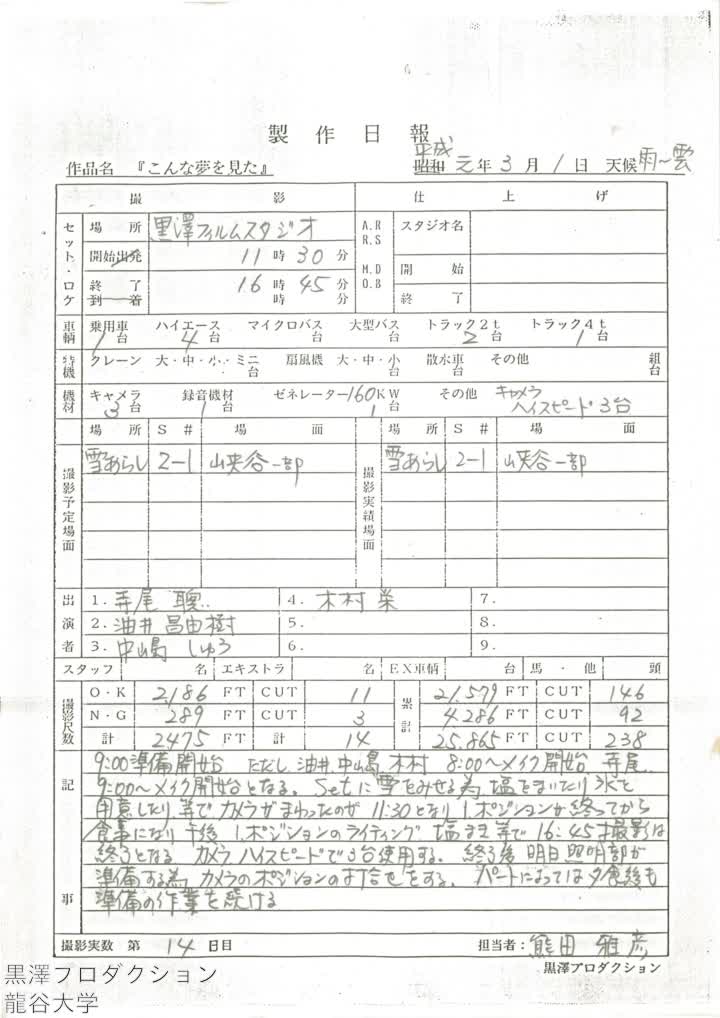 製作日報
作品名 『こんな夢を見た』 昭和 平成 元年 3月 1日 天候 雨〜雲
撮影 仕上げ
セット・ロケ 場所 黒澤フィルムスタジオ A.R R.S スタジオ名
開始出発 11時30分 M.D O.B 開始
終了 16時45分 終了
到着 時 分
車輌 乗用車 1台 ハイエース 4台 マイクロバス 大型バス トラック2t 2台 トラック4t 1台
特機 クレーン 大・中・小・ミニ 台 扇風機 大・中・小 台 散水車 台 その他 組 台
機材 キャメラ 3台 録音機材 1台 ゼネレーター 160KW 1台 その他 キャメラ ハイスピード3台
場所 S# 場面 場所 S# 場面
撮影予定場面 雪あらし 2-1 山峡谷一部 撮影実績場面 雪あらし 2-1 山峡谷一部
出演者 1. 寺尾 聰 4. 木村 栄 7.
2. 油井昌由樹 5. 8.
3. 中島 しゅう 6. 9.
スタッフ 名 エキストラ 名 EX車輌 台 馬・他 頭
撮影尺数 O・K 2186 FT CUT 11 累計 21.579 FT CUT 146
N・G 289 FT CUT 3 4.286 FT CUT 92
計 2475 FT CUT 14 25.865 FT CUT 238
記事 9:00準備開始 ただし、油井、中島、木村 8:00〜メイク開始 寺尾
9:00〜メイク開始となる。Setに雪をみせる為、塩をまいたり氷を
用意したり等でカメラがまわったのが 11:30となり 1.ポジションが終ってから
食事になり 午後 1.ポジションのライティング 塩まき等で 16:45 撮影は
終了となる カメラ ハイスピードで3台使用する。終了後 明日 照明部が
準備する為、カメラのポジションの打合せをする。パートによっては夕食後も
準備の作業を続ける
撮影実数 第 14 日目 担当者: 熊田 雅彦
黒澤プロダクション
黒澤プロダクション
龍谷大学